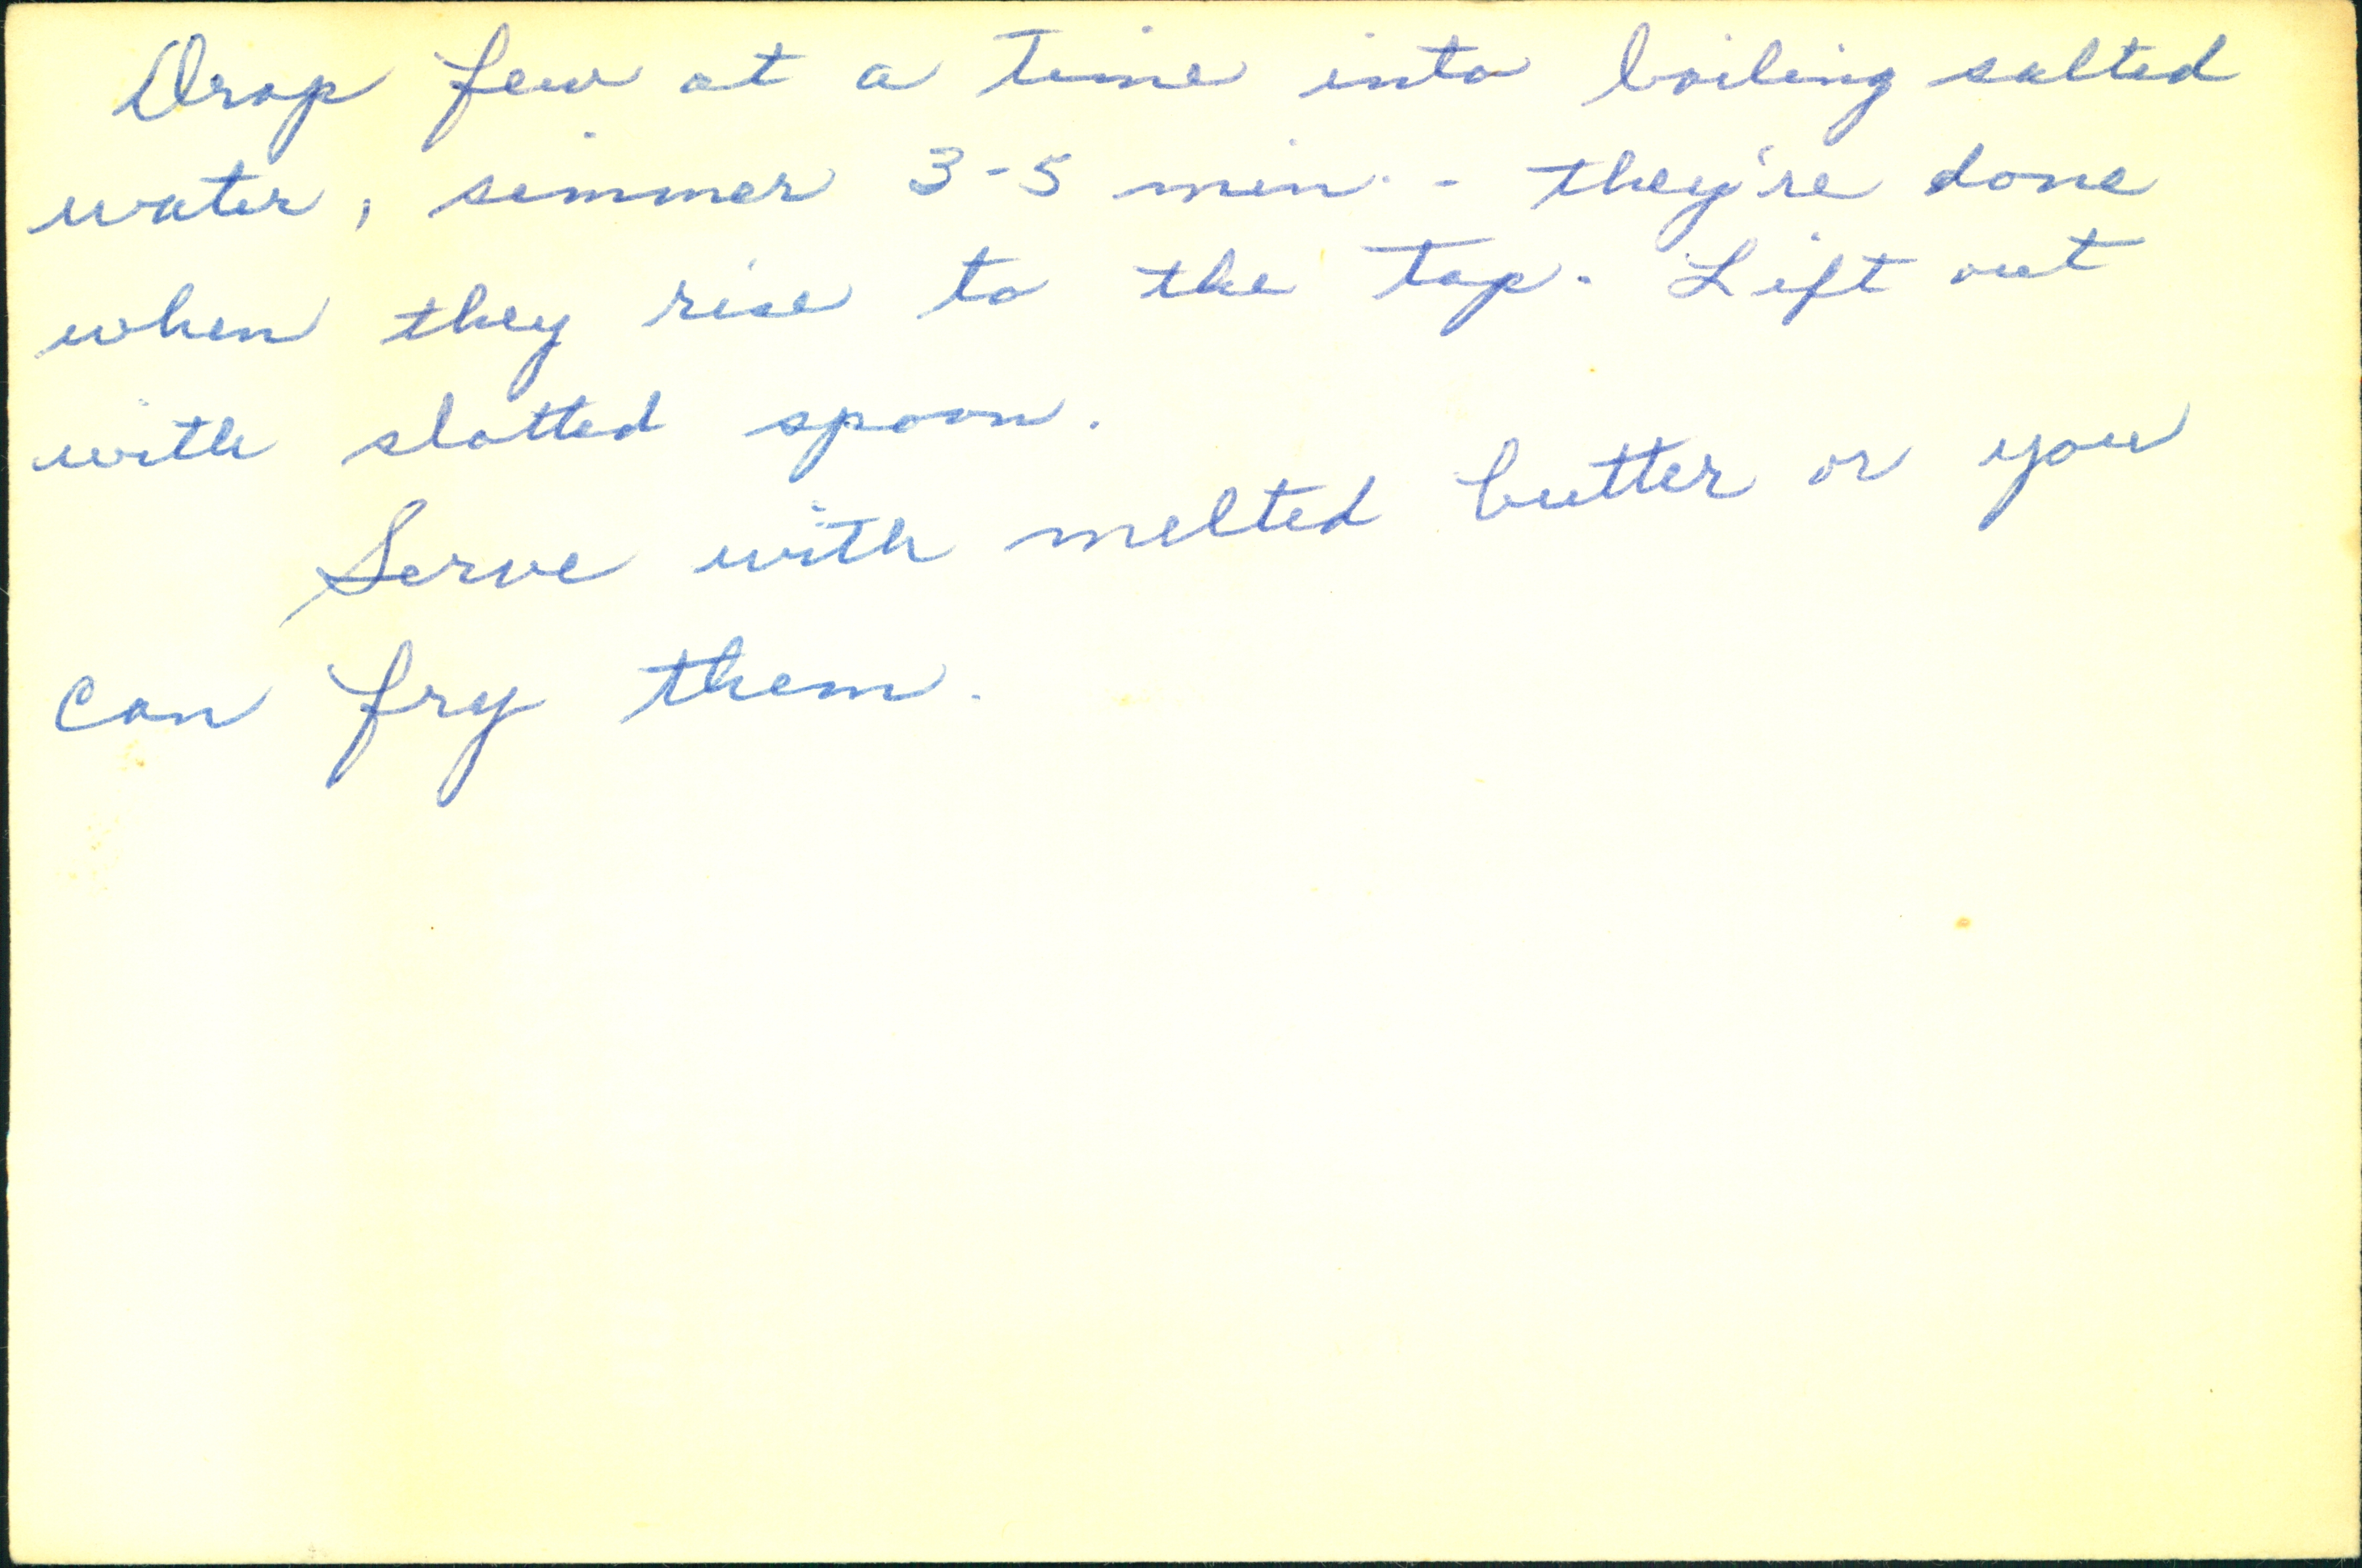 Drop few at a time into boiling salted
water, simmer 3-5 min. - they're done
when they rise to the top. Lift out
with slotted spoon.
Serve with melted butter or you
can fry them.